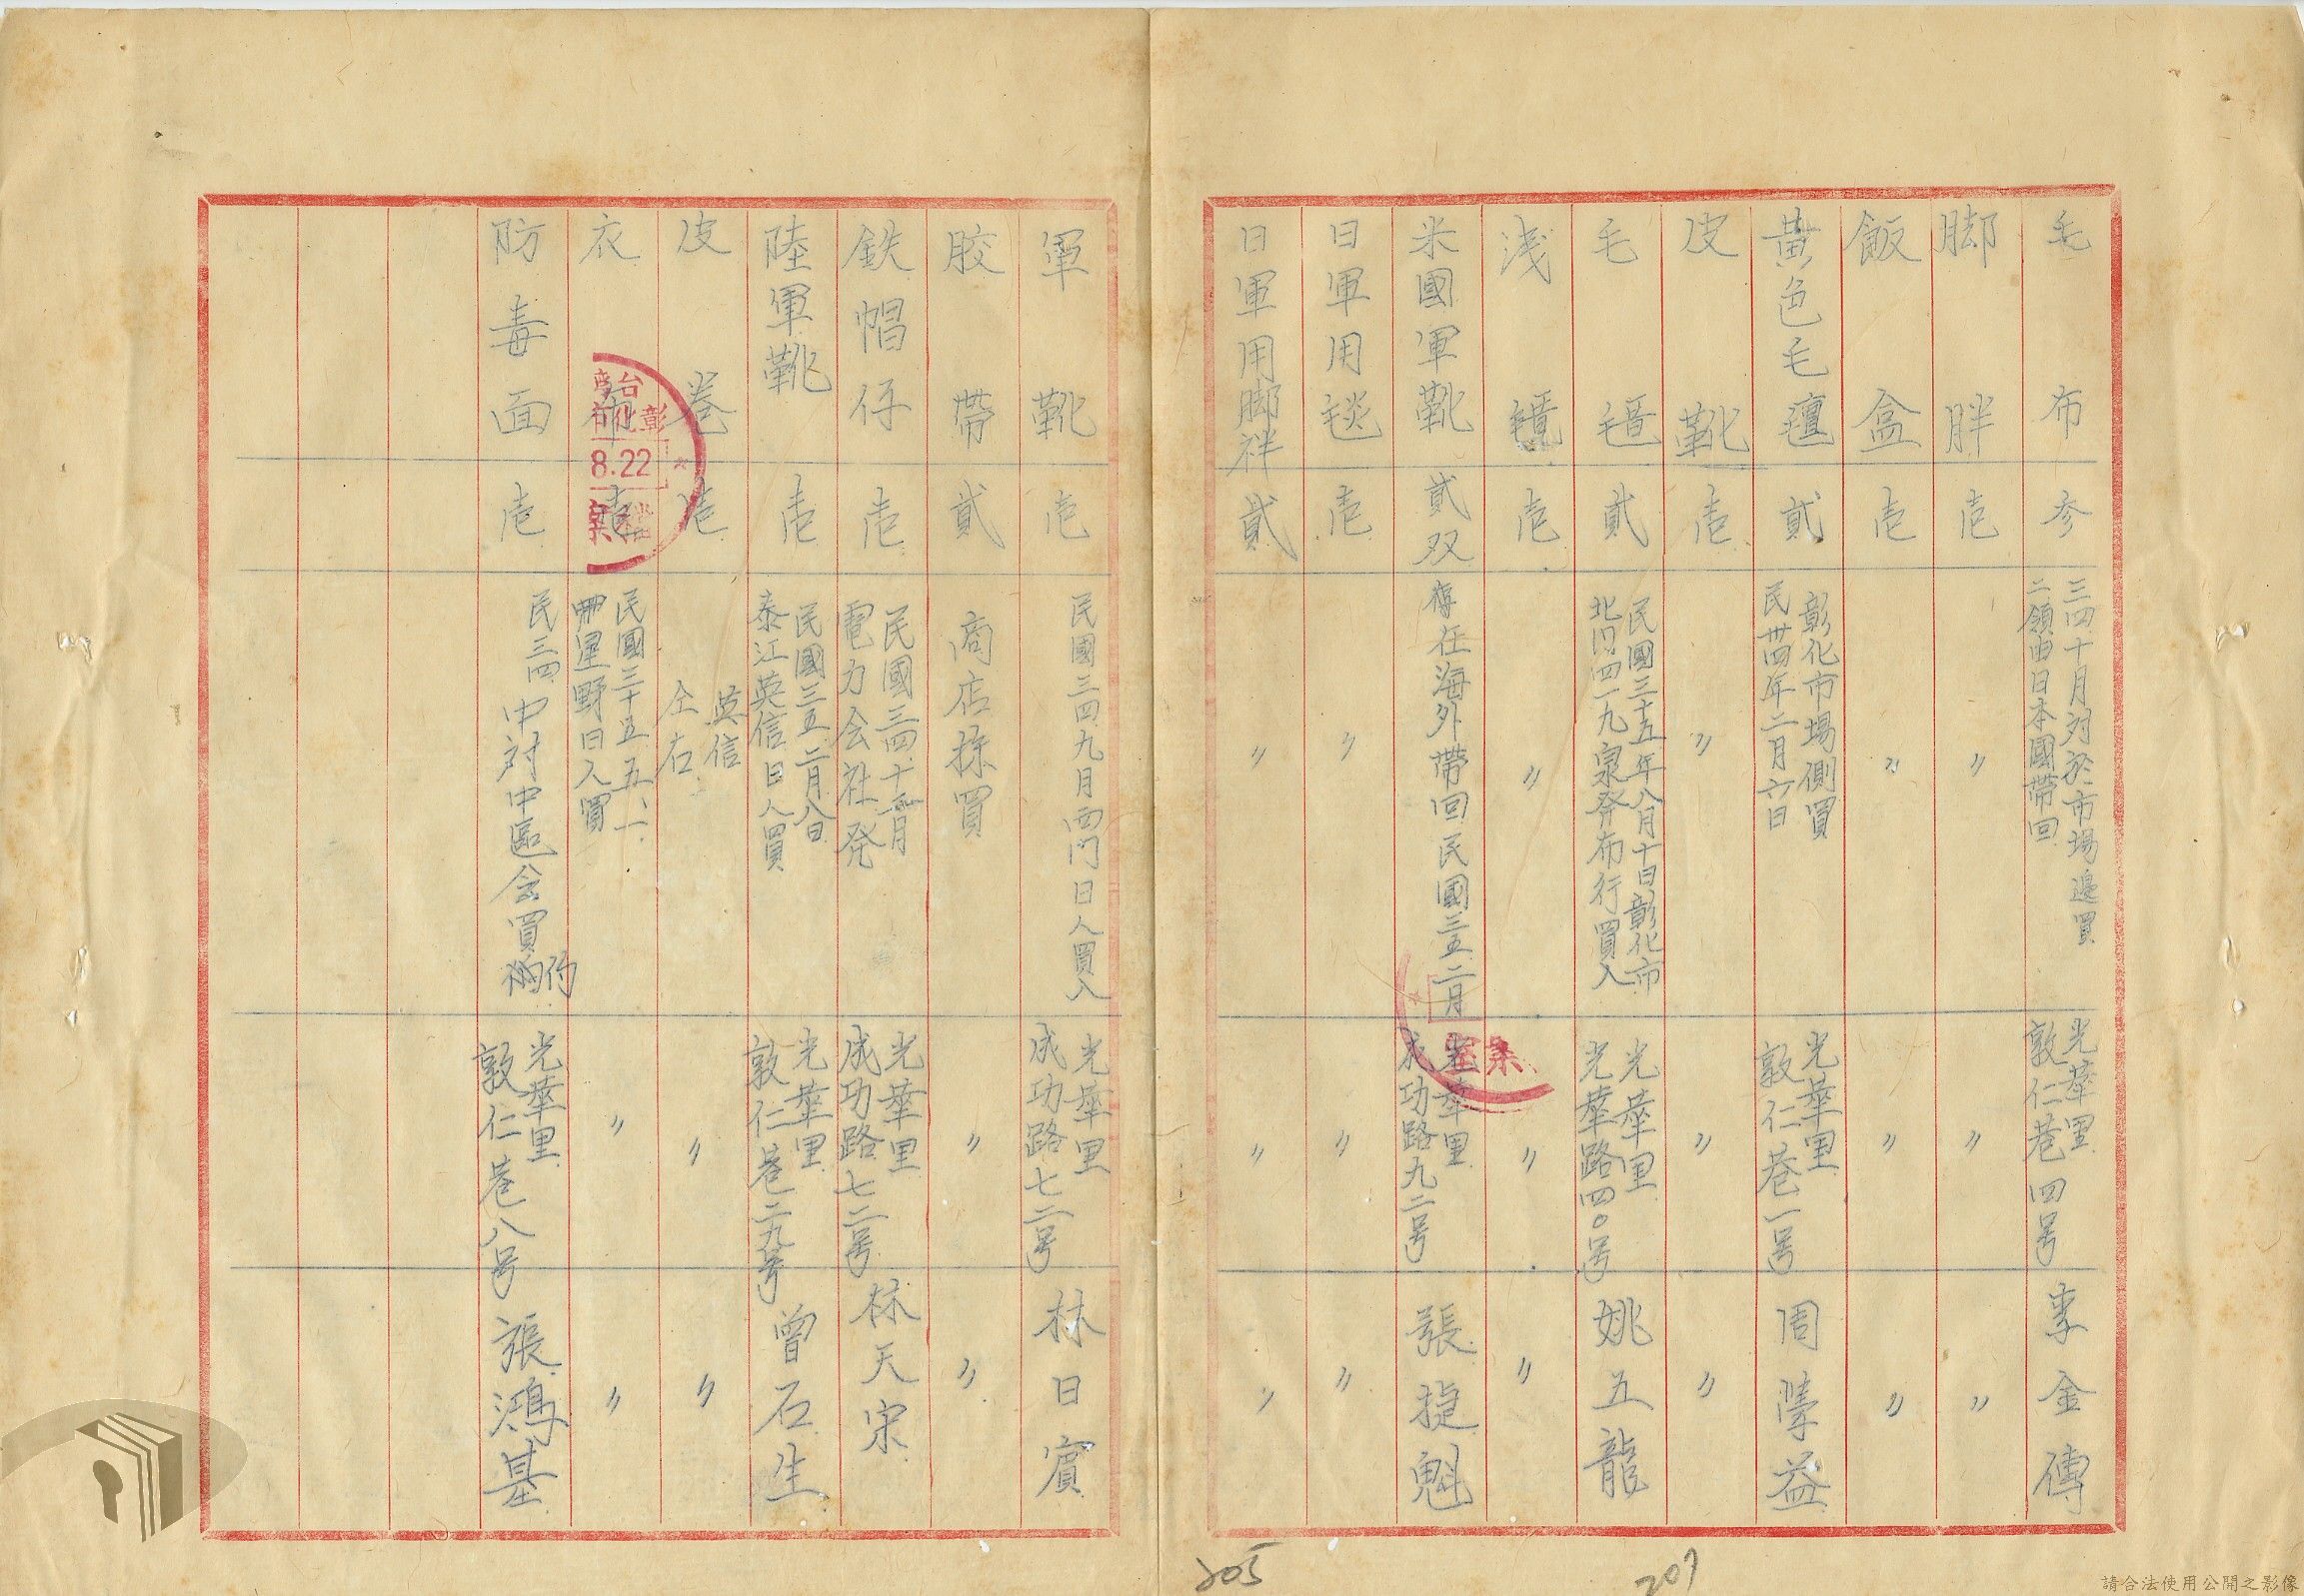 毛布 参 三四十月対於市場邊買 光華里 李金傳
二領由日本國帶回 敦仁巷四号
脚胖 壱 〃 〃 〃
飯盒 壱 〃 〃 〃
黃色毛氊 貳 彰化市場側買 光華里 周 益
民卅四年二月六日 敦仁巷一号
皮靴 壱 〃 〃 〃
毛 貳 民國三十五年八月十日彰化市 光華里 姚五龍
北門四一九泉発布行買入 光華路四〇号
淺 壱 〃 〃 〃
米國軍靴 貳双 存在海外帶回民國三五二月 光華里 張捷魁
成功路九二号
日軍用毯 壱 〃 〃 〃
日軍用脚袢 貳 〃 〃 〃
軍靴 壱 民國三四九月西門日人買入 光華里 林日賓
成功路七二号
胶帶 貳 商店採買 〃 〃
鉄帽仔 壱 民國三四十 月 光華里 林天宗
電力会社発 成功路七二号
陸軍靴 壱 民國三五二月八日 光華里 曾石生
泰江英信日人買 敦仁巷二九号
皮卷 壱 英信 〃 〃
仝右
衣 壱 民國三十五、五、一、 〃 〃
星野日人買
防毒面 壱 民三四中対中區会買的 光華里 張鴻基
敦仁巷八号
台
彰化
8.22
档案
案
205
207
請合法使用公開之影像